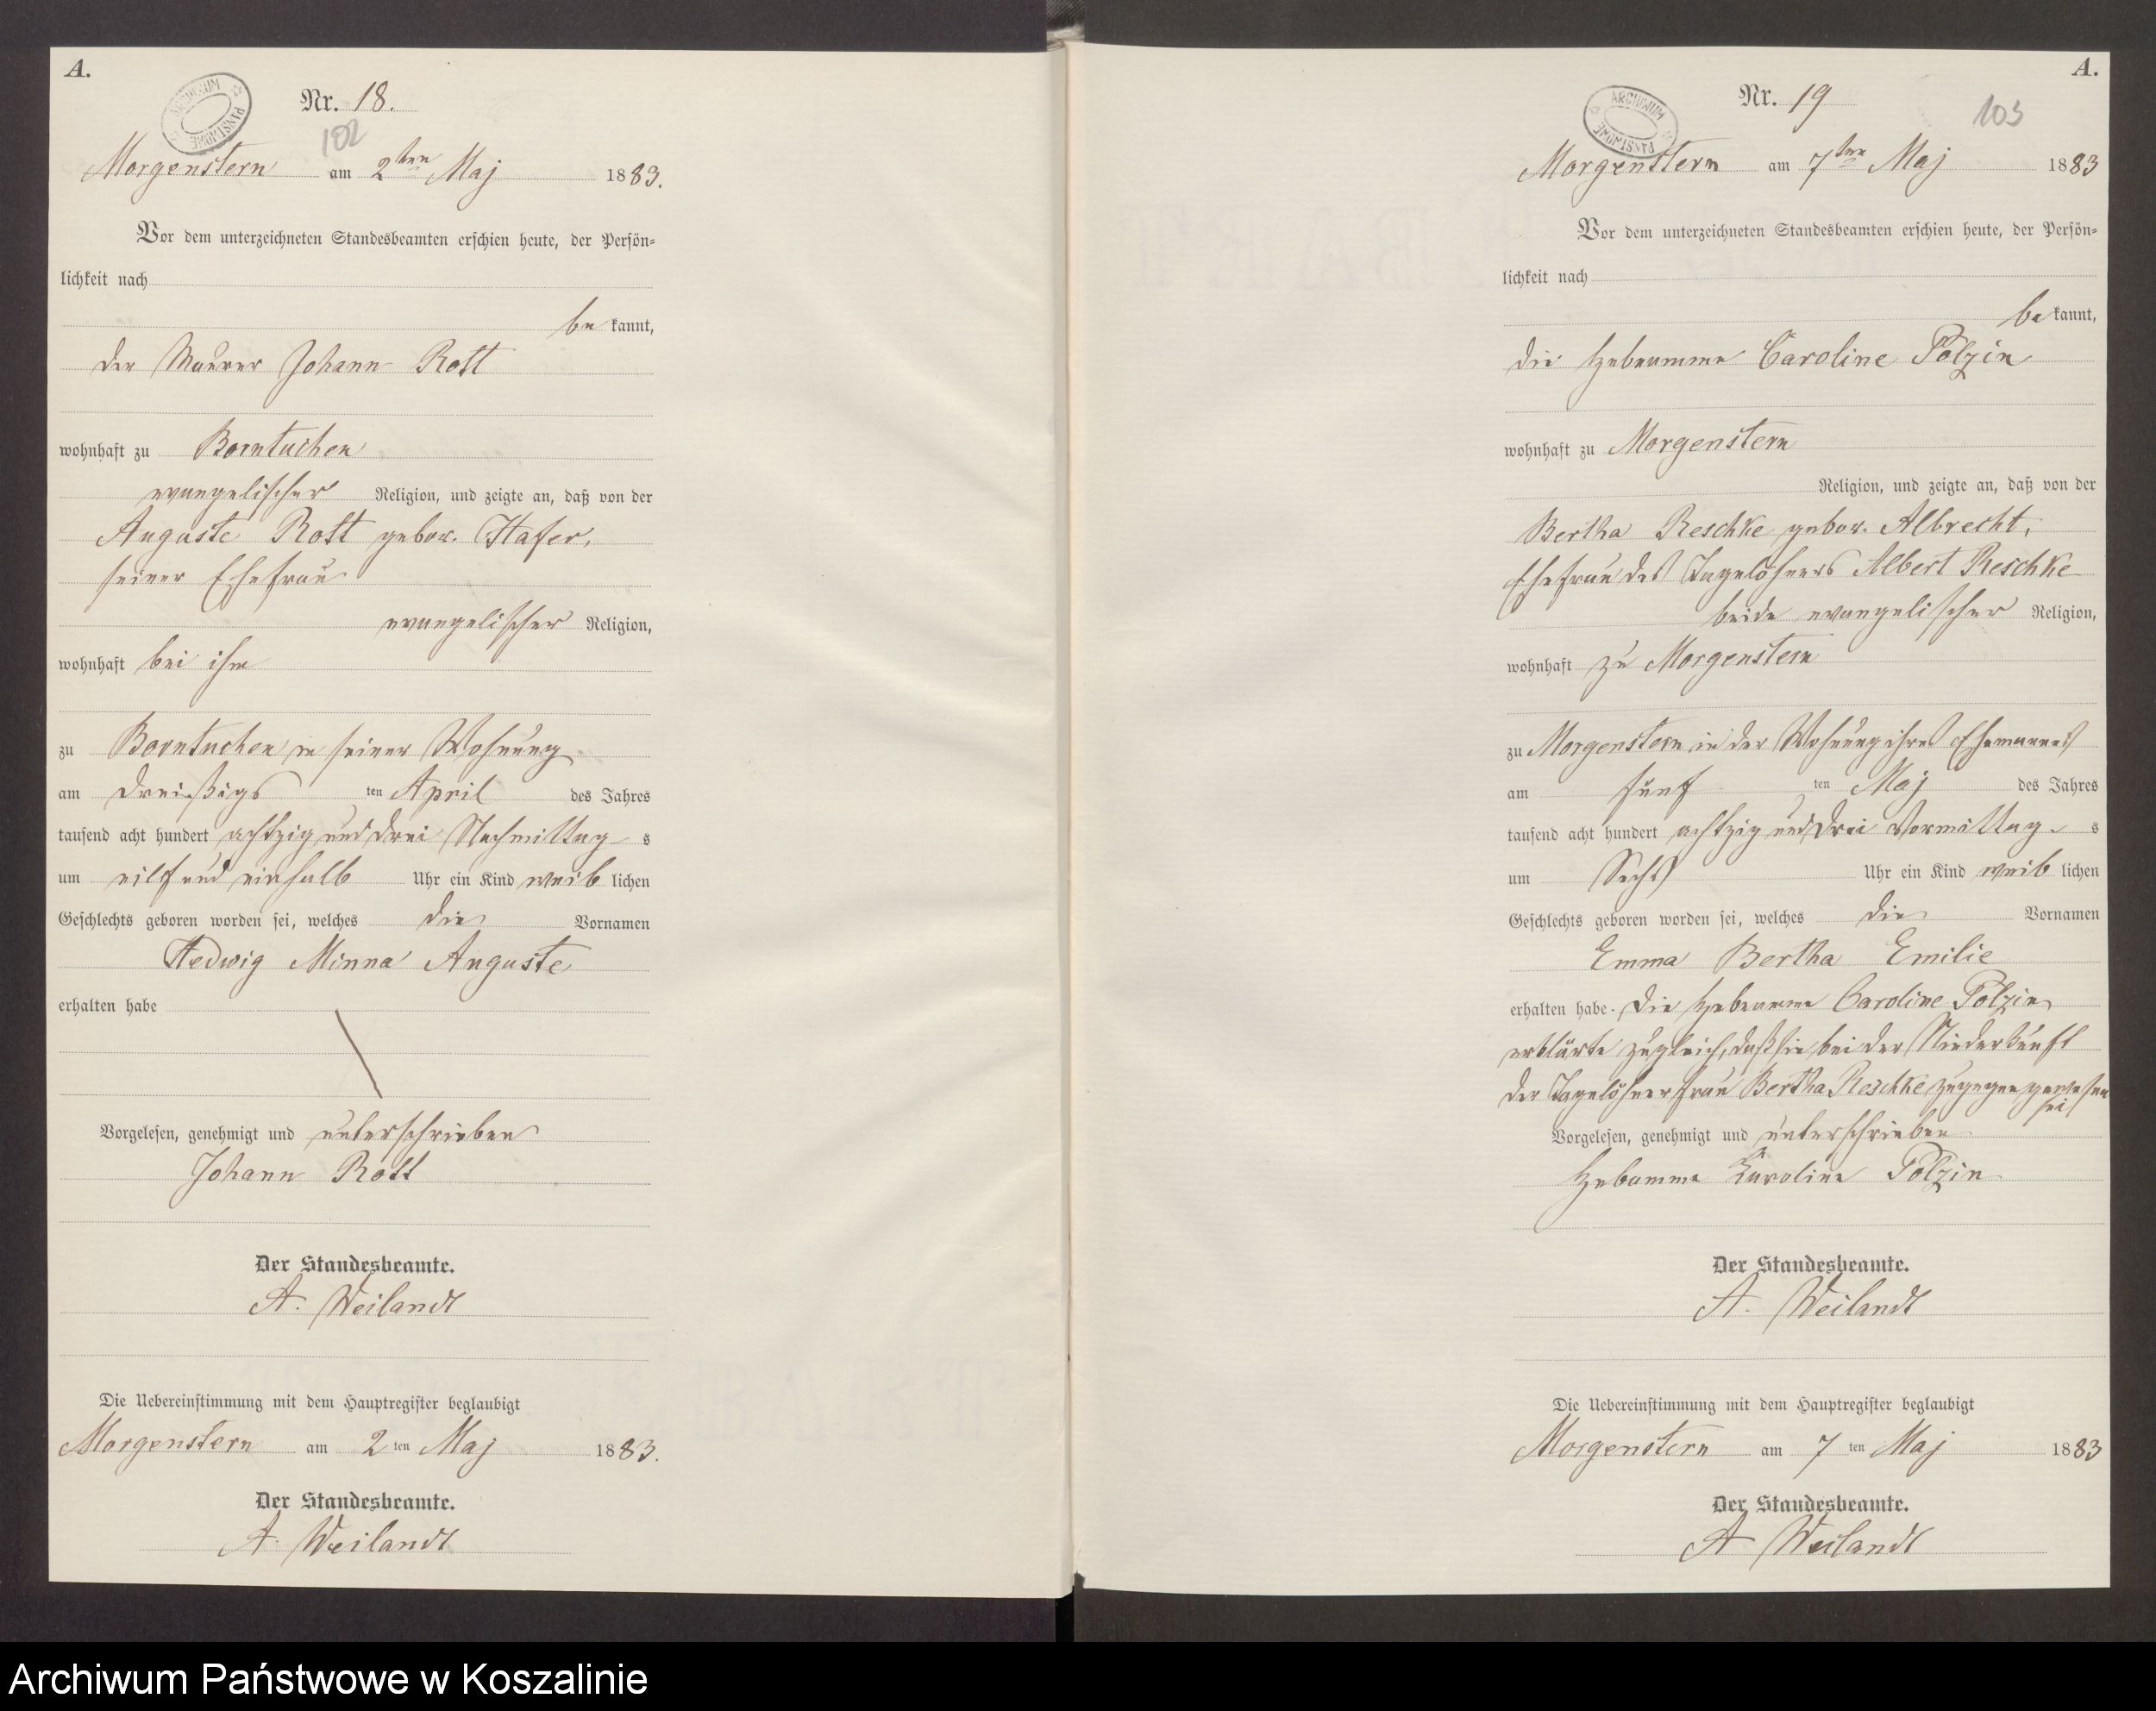 A.
ARCHIWUM PAŃSTWOWE
Nr. 18.
102
Morgenstern am 2ten Maj 1883.
Vor dem unterzeichneten Standesbeamten erschien heute, der Persön-
lichkeit nach
be kannt,
der Maurer Johann Rott
wohnhaft zu Borntuchen
evangelischer Religion, und zeigte an, daß von der
Auguste Rott gebor. Hafer,
seiner Ehefrau
evangelischer Religion,
wohnhaft bei ihm
zu Borntuchen in seiner Wohnung
am dreißigs ten April des Jahres
tausend acht hundert achtzig und drei Nachmittag s
um eilf und einhalb Uhr ein Kind weib lichen
Geschlechts geboren worden sei, welches die Vornamen
Hedwig Minna Auguste
erhalten habe
Vorgelesen, genehmigt und unterschrieben
Johann Rott
Der Standesbeamte.
A. Weilandt
Die Uebereinstimmung mit dem Hauptregister beglaubigt
Morgenstern am 2 ten Maj 1883.
Der Standesbeamte.
A. Weilandt
A.
ARCHIWUM PAŃSTWOWE
Nr. 19
103
Morgenstern am 7ten Maj 1883
Vor dem unterzeichneten Standesbeamten erschien heute, der Persön-
lichkeit nach
be kannt,
die Hebeamme Caroline Polzin
wohnhaft zu Morgenstern
Religion, und zeigte an, daß von der
Bertha Reschke gebor. Albrecht,
Ehefrau des Tagelöhners Albert Reschke
beide evangelischer Religion,
wohnhaft zu Morgenstern
zu Morgenstern in der Wohnung ihres Ehemannes
am fünf ten Maj des Jahres
tausend acht hundert achtzig und drei Vormittag s
um Sechs Uhr ein Kind weib lichen
Geschlechts geboren worden sei, welches die Vornamen
Emma Bertha Emilie
erhalten habe. Die Hebeamme Caroline Polzin
erklärte zugleich, daß sie bei der Niederkunft
der Tagelöhnerfrau Bertha Reschke zugegen gewesen
sei
Vorgelesen, genehmigt und unterschrieben
Hebamme Karoline Polzin
Der Standesbeamte.
A. Weilandt
Die Uebereinstimmung mit dem Hauptregister beglaubigt
Morgenstern am 7 ten Maj 1883
Der Standesbeamte.
A Weilandt
Archiwum Państwowe w Koszalinie